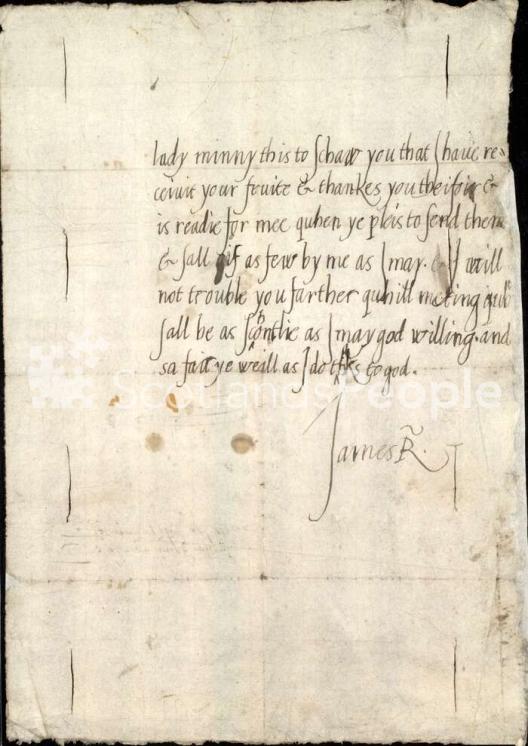 lady minny this to schaw you that I have re-
ceivit your fruite & thankes you theifoir &
is readie for mee quhen ye pleis to send them
& sall gif as few by me as I may. & I will
not trouble you farther quhill meting quhilk
sall be as schortlie as I may god willing. and
sa fair ye weill as I do thks to god.
James R.
ScotlandsPeople